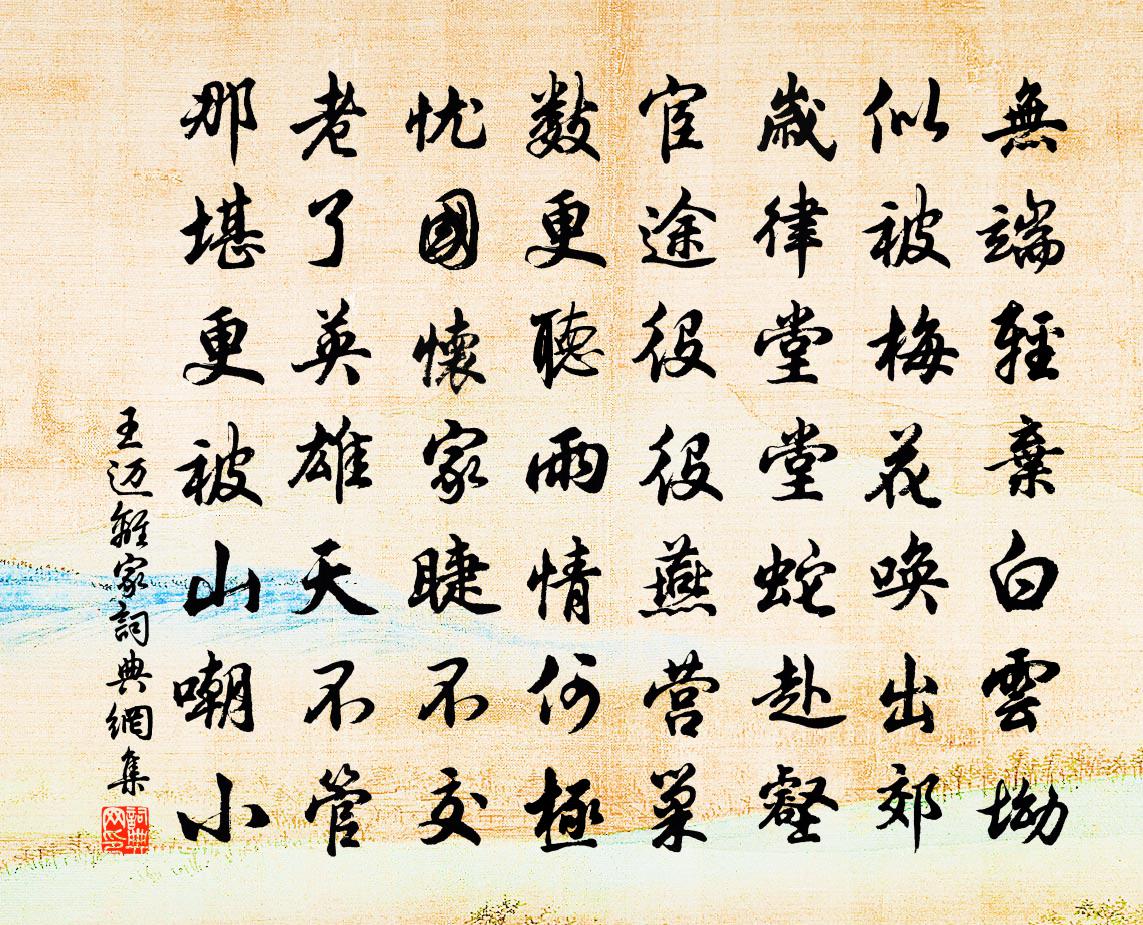 無端輕棄白雲坳
似被梅花喚出郊
歲律堂堂蛇赴壑
宦途役役燕营巢
數更聽雨情何極
忧國懷家睫不交
老了英雄天不管
那堪更被山嘲小
王迈離家詞典網集